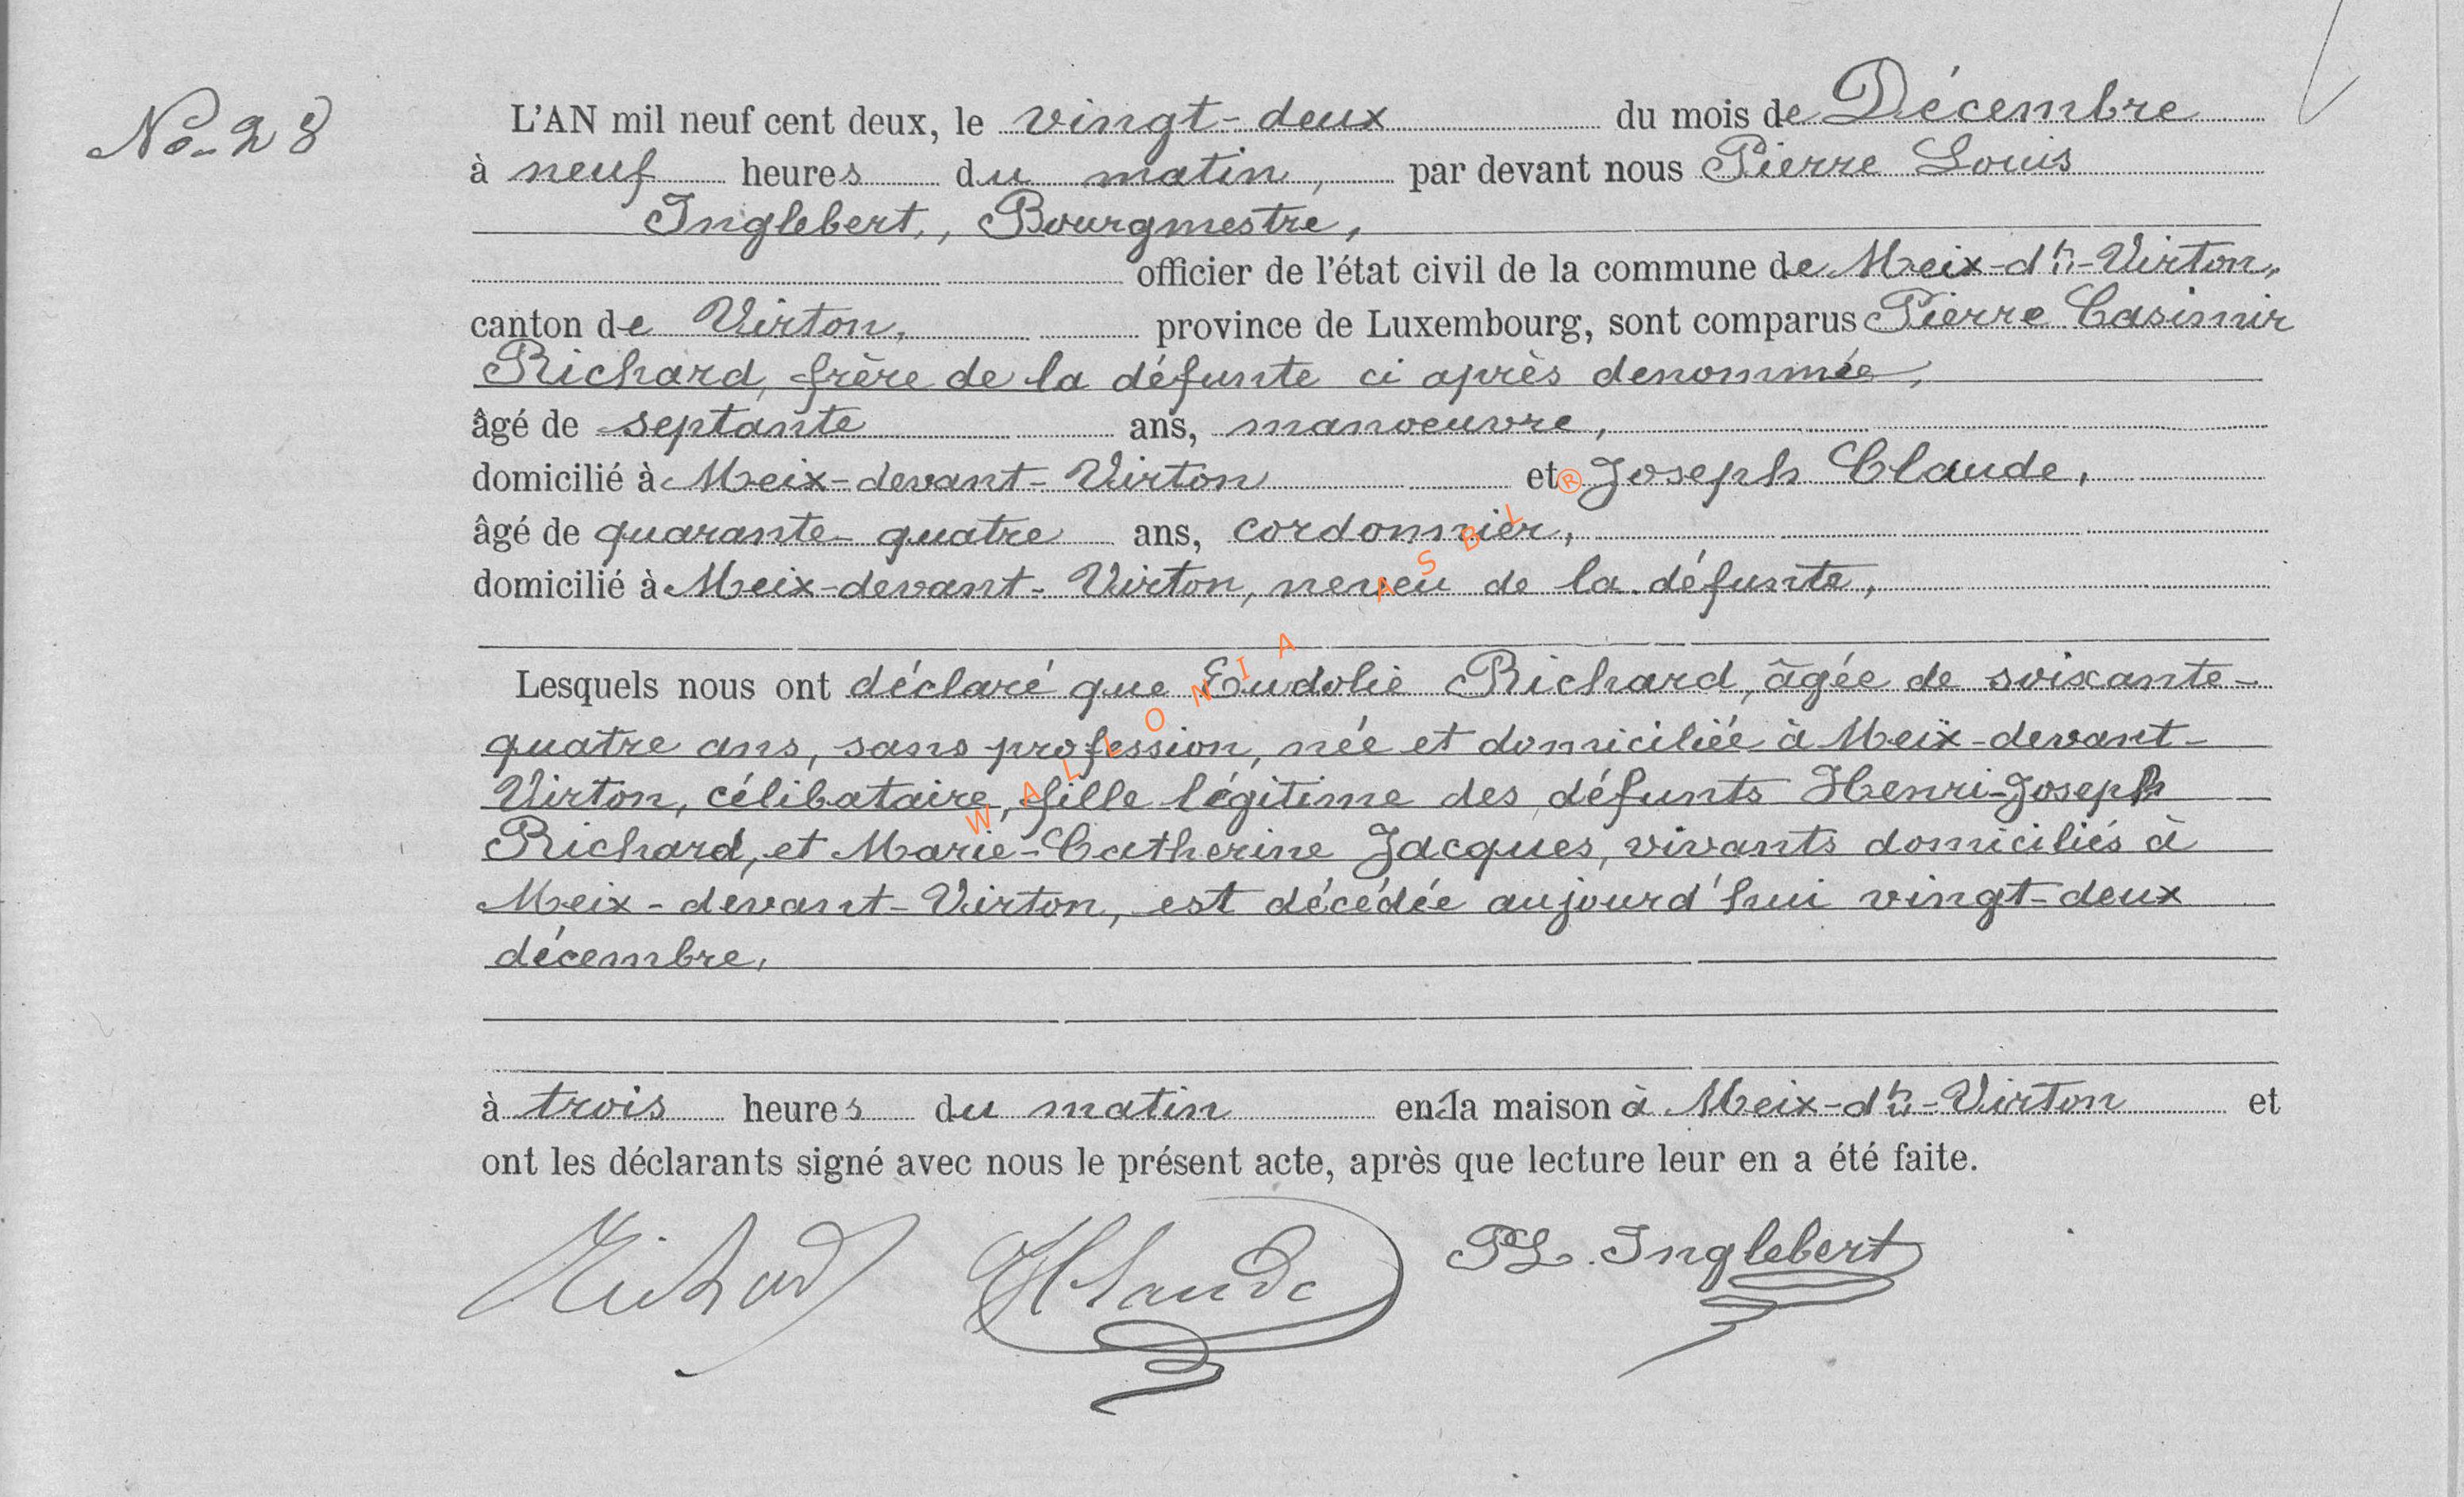 No 28
L'AN mil neuf cent deux, le vingt-deux du mois de Décembre
à neuf heures du matin, par devant nous Pierre Louis
Inglebert, Bourgmestre,
officier de l'état civil de la commune de Meix-dt-Virton,
canton de Virton, province de Luxembourg, sont comparus Pierre Casimir
Richard, frère de la défunte ci après denommée,
âgé de septante ans, manoeuvre,
domicilié à Meix-devant-Virton et Joseph Claude,
âgé de quarante-quatre ans, cordonnier,
domicilié à Meix-devant-Virton, neveu de la défunte,
Lesquels nous ont déclaré que Eudolie Richard, âgée de soixante-
quatre ans, sans profession, née et domiciliée à Meix-devant-
Virton, célibataire, fille légitime des défunts Henri-Joseph
Richard, et Marie-Catherine Jacques, vivants domiciliés à
Meix-devant-Virton, est décédée aujourd'hui vingt-deux
décembre,
à trois heures du matin en la maison à Meix-dt-Virton et
ont les déclarants signé avec nous le présent acte, après que lecture leur en a été faite.
Richard JClaude PL. Inglebert
WALLONIA ASBL ®